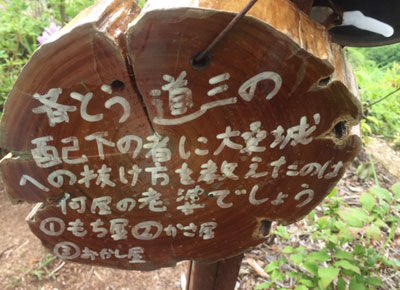 斉とう道三の
配下の者に大桑城
への抜け方を教えたのは
何屋の老婆でしょう
①もち屋②かさ屋
③おかし屋